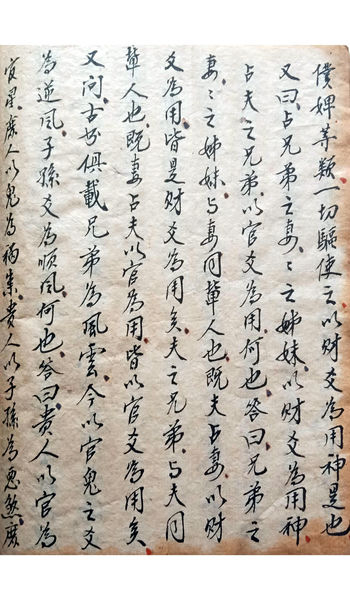 僕婢等類一切驅使之以财爻為用神是也
又曰占兄弟之妻妻之姊妹以财爻為用神
占夫之兄弟以官爻為用何也答曰兄弟之
妻妻之姊妹与妻同輩人也既夫占妻以财
爻為用皆是财爻為用矣夫之兄弟与夫同
輩人也既妻占夫以官為用皆以官爻為用矣
又问古书俱載兄弟為風雲今以官鬼之爻
為逆风子孫爻為順风何也答曰貴人以官為
官星庶人以鬼為禍祟貴人以子孫為恶煞庶